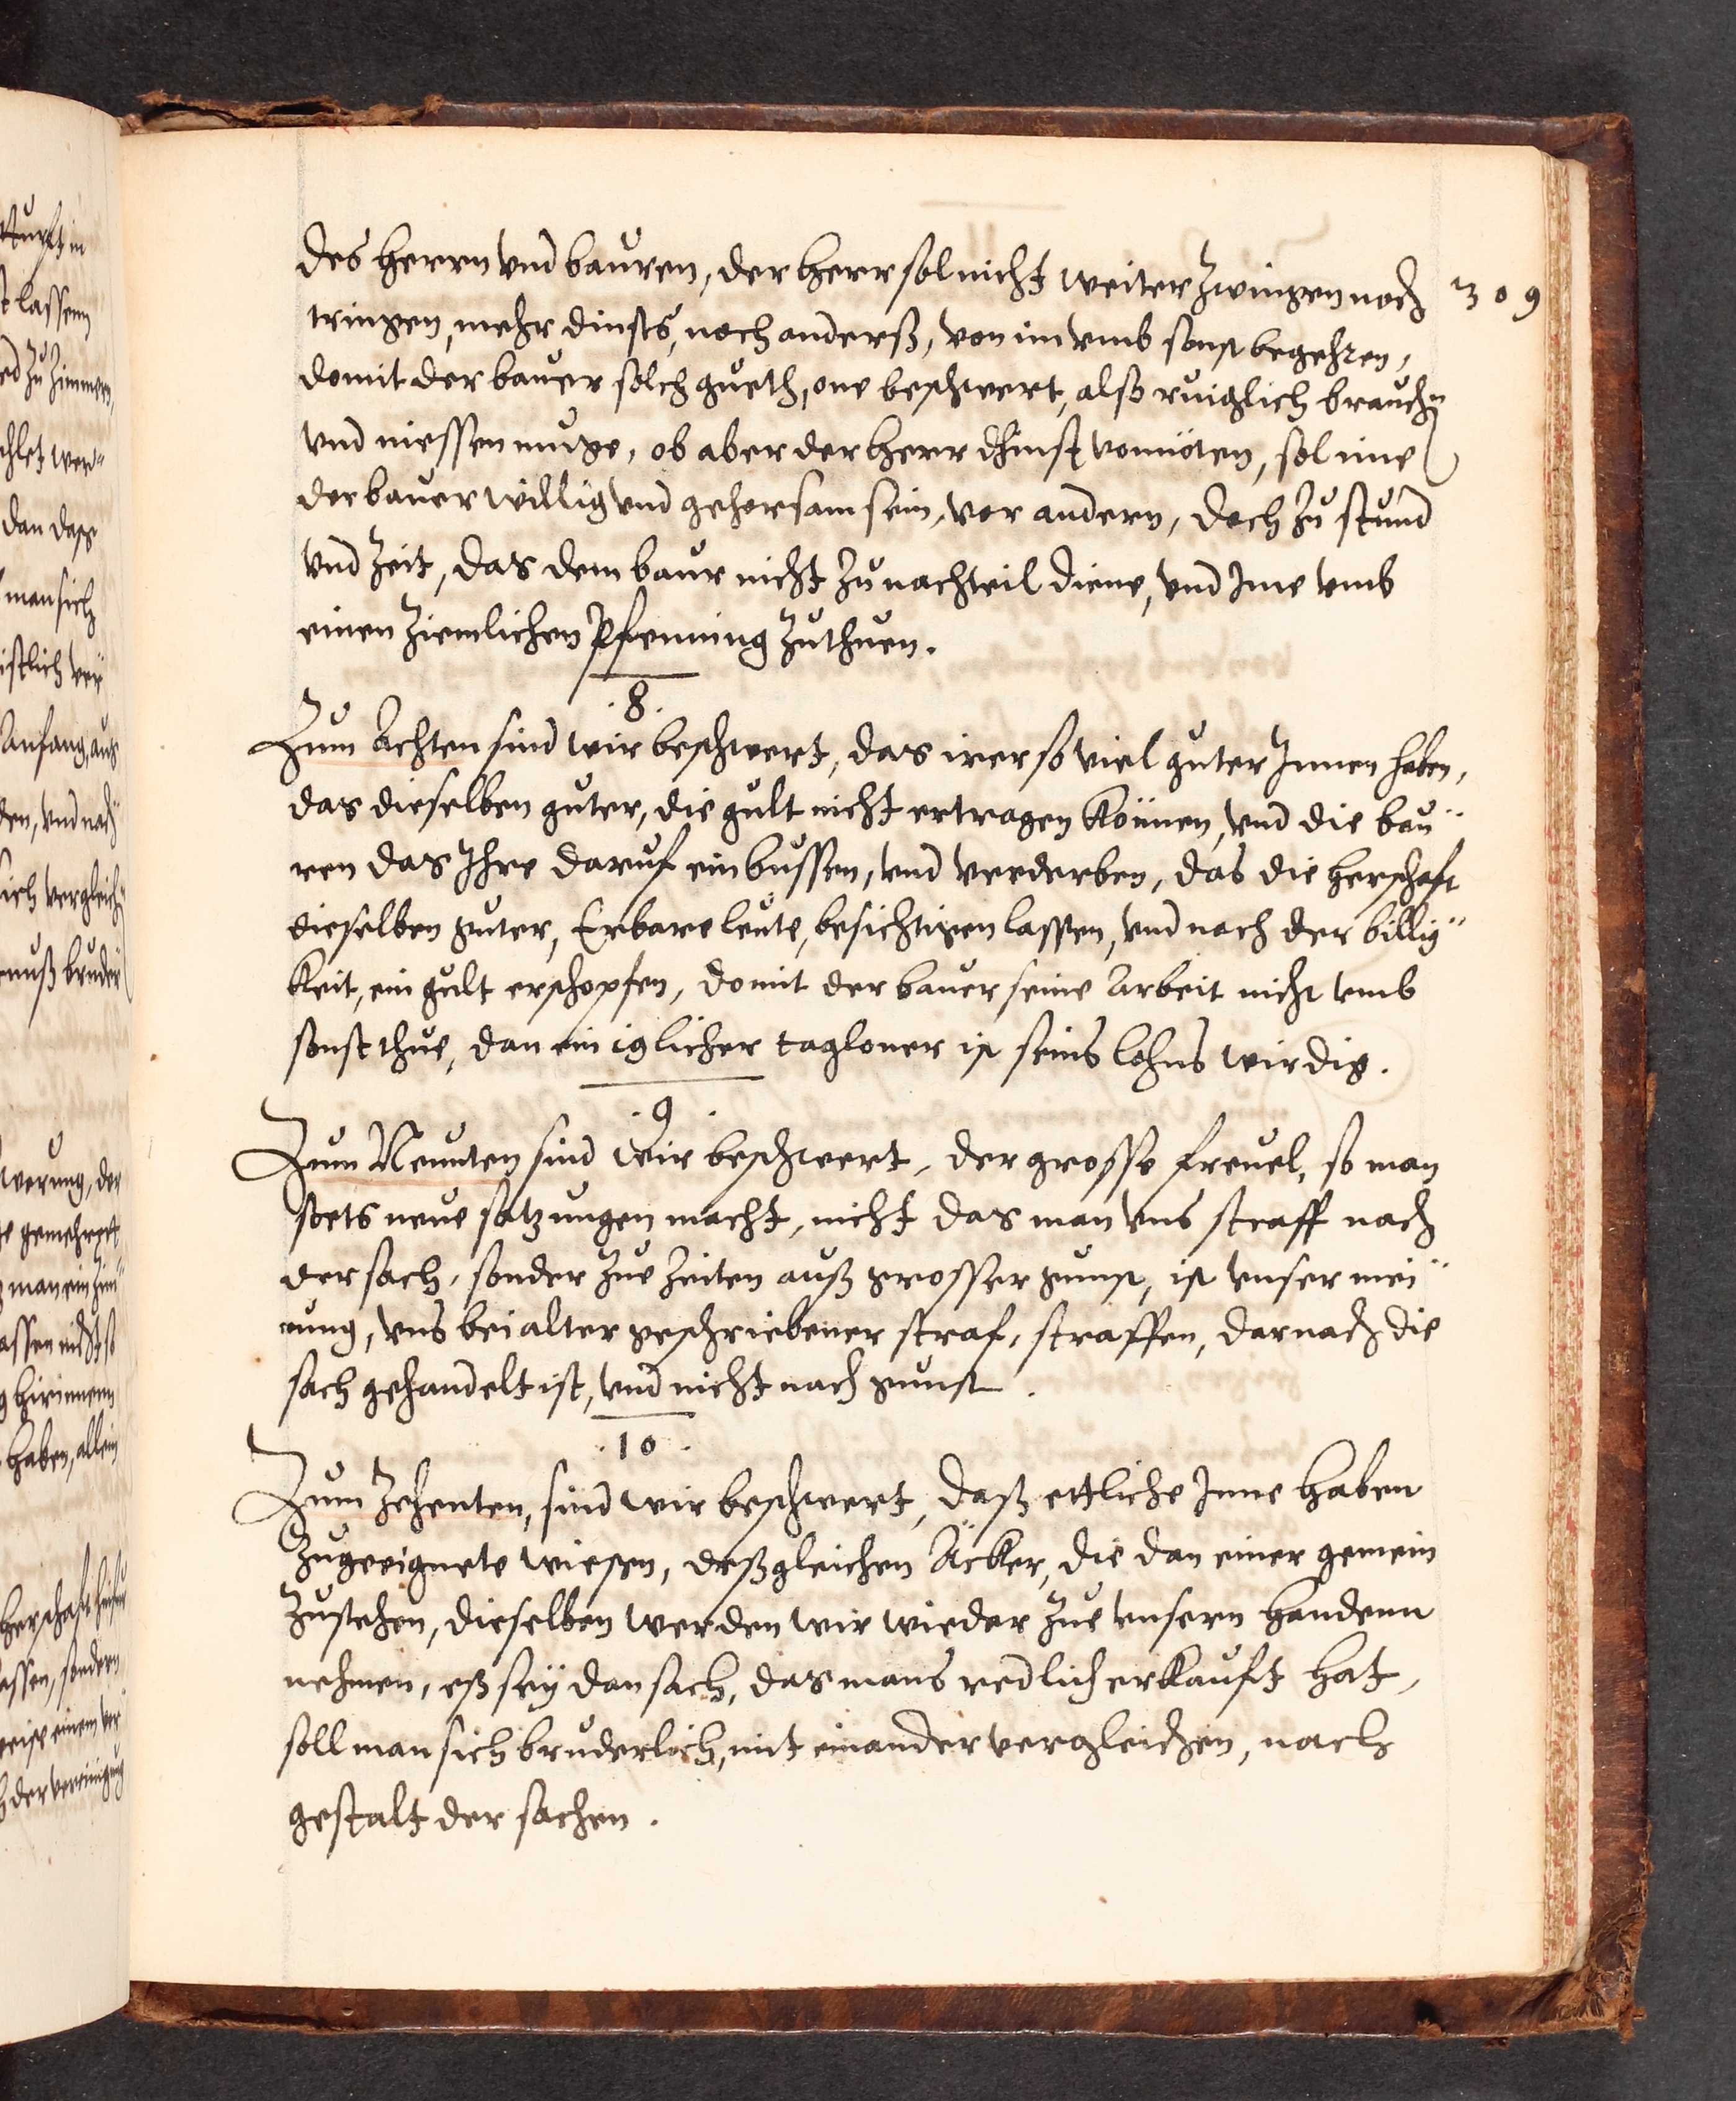 des herrn vnd bauren, der herr sol nicht weiter zwingen noch
309
tringen, mehr dinsts, noch anderß, von im vmb sonst begehren,
domit der bauer solch gueth, one beschwert, alß ruiglich brauchen
vnd niessen muge, ob aber der herr dhinst vonnöten, sol ime
der bauer willig vnd gehorsam sein, vor andern, doch zu stund
vnd zeit, das dem baur nicht zu nachteil diene, vnd Ime vmb
einen ziemlichen Pfenning zuthuen.
.8.
Zum Achten sind wir beschwert, das irer so viel guter Innen haben,
das dieselben guter, die gult nicht ertragen können, vnd die bau¨
ren das Ihre daruf einbussen, vnd verderben, das die herschaft
dieselben guter, Erbare leute, besichtigen lassen, vnd nach der billig¨
keit, ein gult erschopfen, domit der bauer seine Arbeit nicht vmb
sonst thue, dan ein iglicher tagloner ist seins lohns wirdig.
.9.
Zum Neunten sind wir beschwert, der grosse freuel, so man
stets neue satzungen macht, nicht das man vns straff nach
der sach, sonder zue zeiten auß grosser gunst, ist vnser mei¨
nung, vns bei alter geschriebener straf, straffen, darnach die
sach gehandelt ist, vnd nicht nach gunst.
.10.
Zum Zehenten, sind wir beschwert, daß ettliche Inne haben
zugeeignete wiesen, deßgleichen Äcker, die dan einer gemein
zustehen, dieselben werden wir wieder zue vnsern handenn
nehmen, eß seÿ dan sach, das mans redlich erkauft hat,
soll man sich bruderlich, mit einander vergleichen, nach
gestalt der sachen.